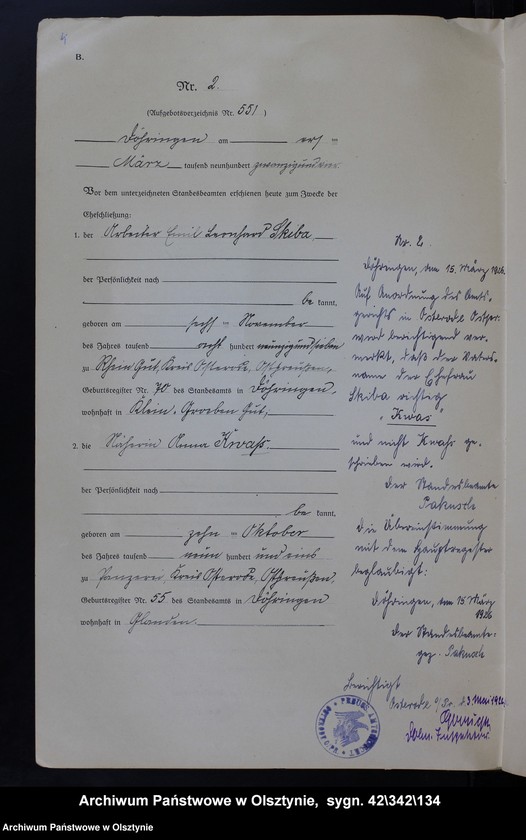 B.
Nr. 2.
(Aufgebotsverzeichnis Nr. 551)
Döhringen am ersten
März tausend neunhundert zwanzigundvier
Vor dem unterzeichneten Standesbeamten erschienen heute zum Zwecke der
Eheschließung:
1. der Arbeiter Emil Bernhard Skiba
der Persönlichkeit nach
be kannt,
geboren am sechsten November
des Jahres tausend acht hundert neunzigundsieben
zu Rhein Gut, Kreis Osterode, Ostpreußen,
Geburtsregister Nr. 70 des Standesamts in Döhringen,
wohnhaft in Klein-Groeben Gut,
2. die Näherin Anna Kwaß.
der Persönlichkeit nach
be kannt,
geboren am zehn ten Oktober
des Jahres tausend neun hundert und eins
zu Panzerei, Kreis Osterode, Ostpreußen,
Geburtsregister Nr. 55 des Standesamts in Döhringen
wohnhaft in Glanden.
Nr. 2
Döhringen, am 15. März 1926.
Auf Anordnung des Amts-
gerichts in Osterode Ostpr.
wird berichtigend ver-
merkt, daß der Vaters-
name der Ehefrau
Skiba richtig
"Kwas"
und nicht Kwahs ge-
schrieben wird.
Der Standesbeamte
Die Übereinstimmung
mit dem Hauptregister
beglaubigt:
Döhringen, am 15 März
1926
Der Standesbeamte:
gez.
Berichtigt
Osterode O/Pr. d. 3. Mai 1926
Archiwum Państwowe w Olsztynie, sygn. 42\342\134
Archiwum Państwowe w Olsztynie